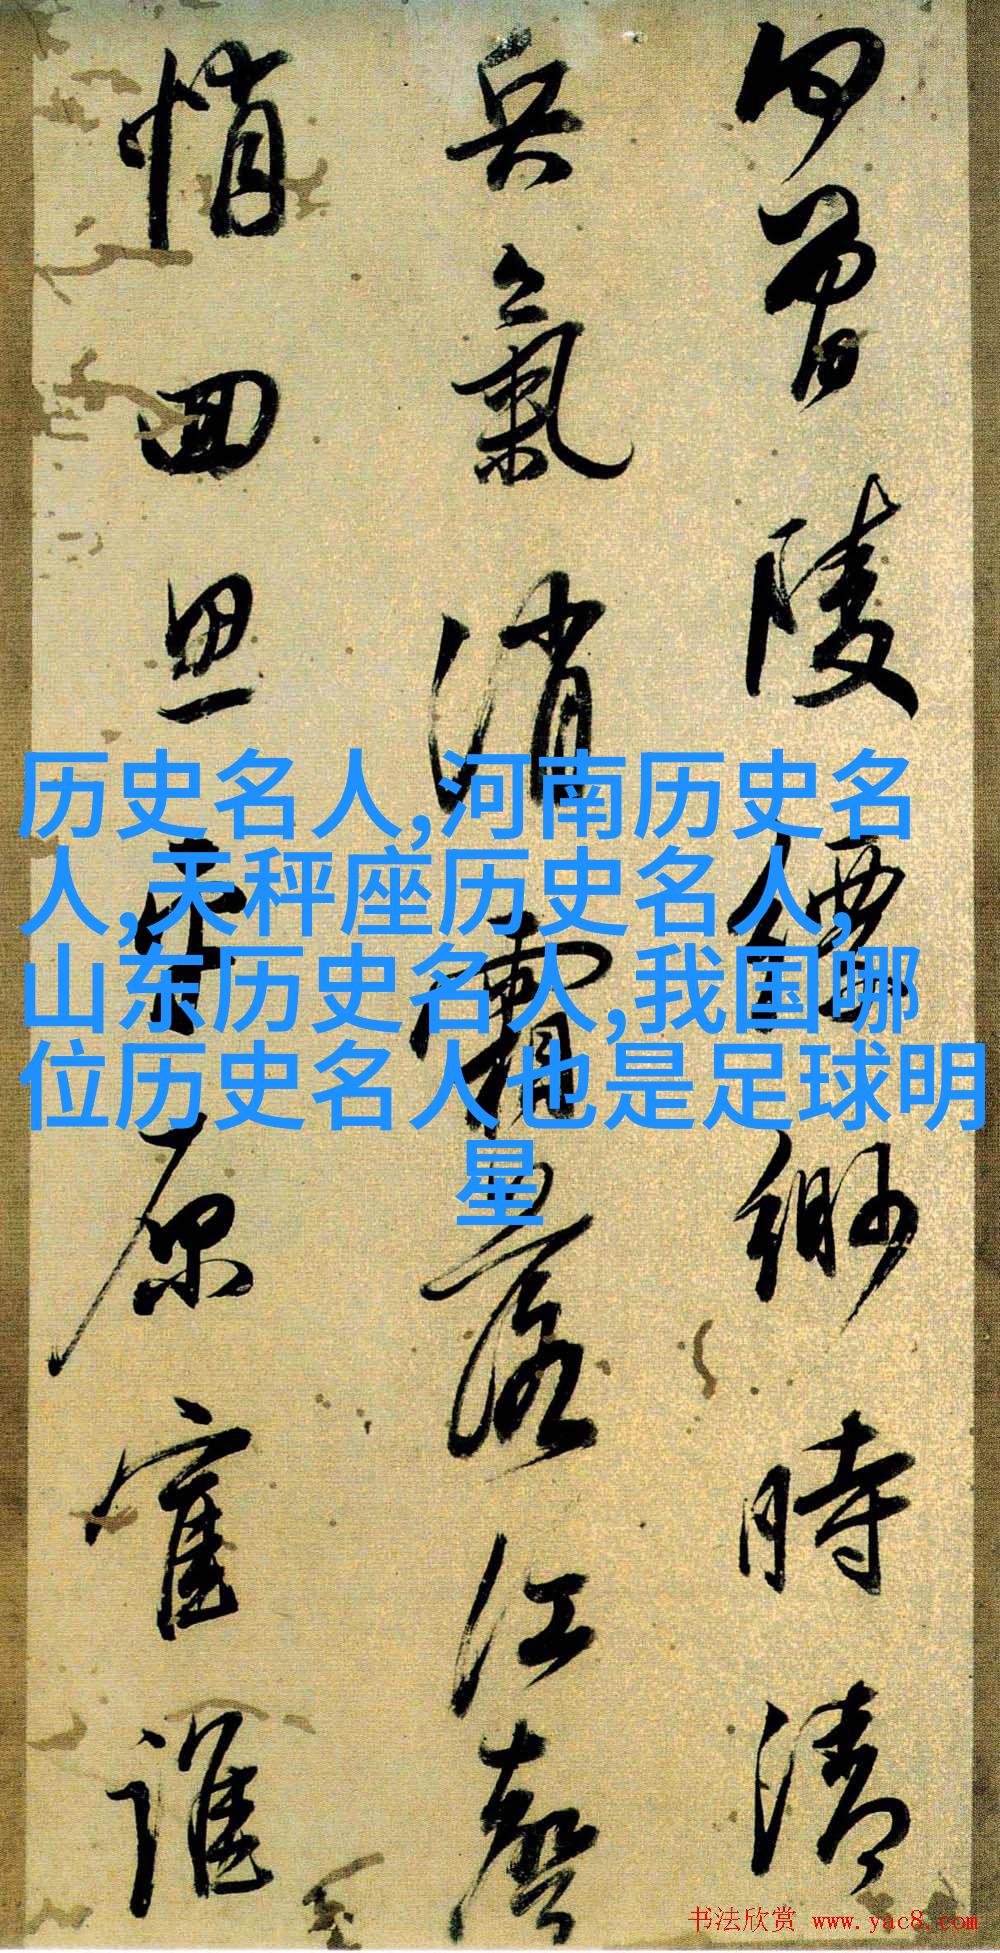 何曾陵緬緲時清
兵氣消霜落江聲
悄回思原宦誰
历史名人,河南历史名
人,天秤座历史名人,
山东历史名人,我国哪
位历史名人也是足球明
星
书法欣赏 www.yac8.com